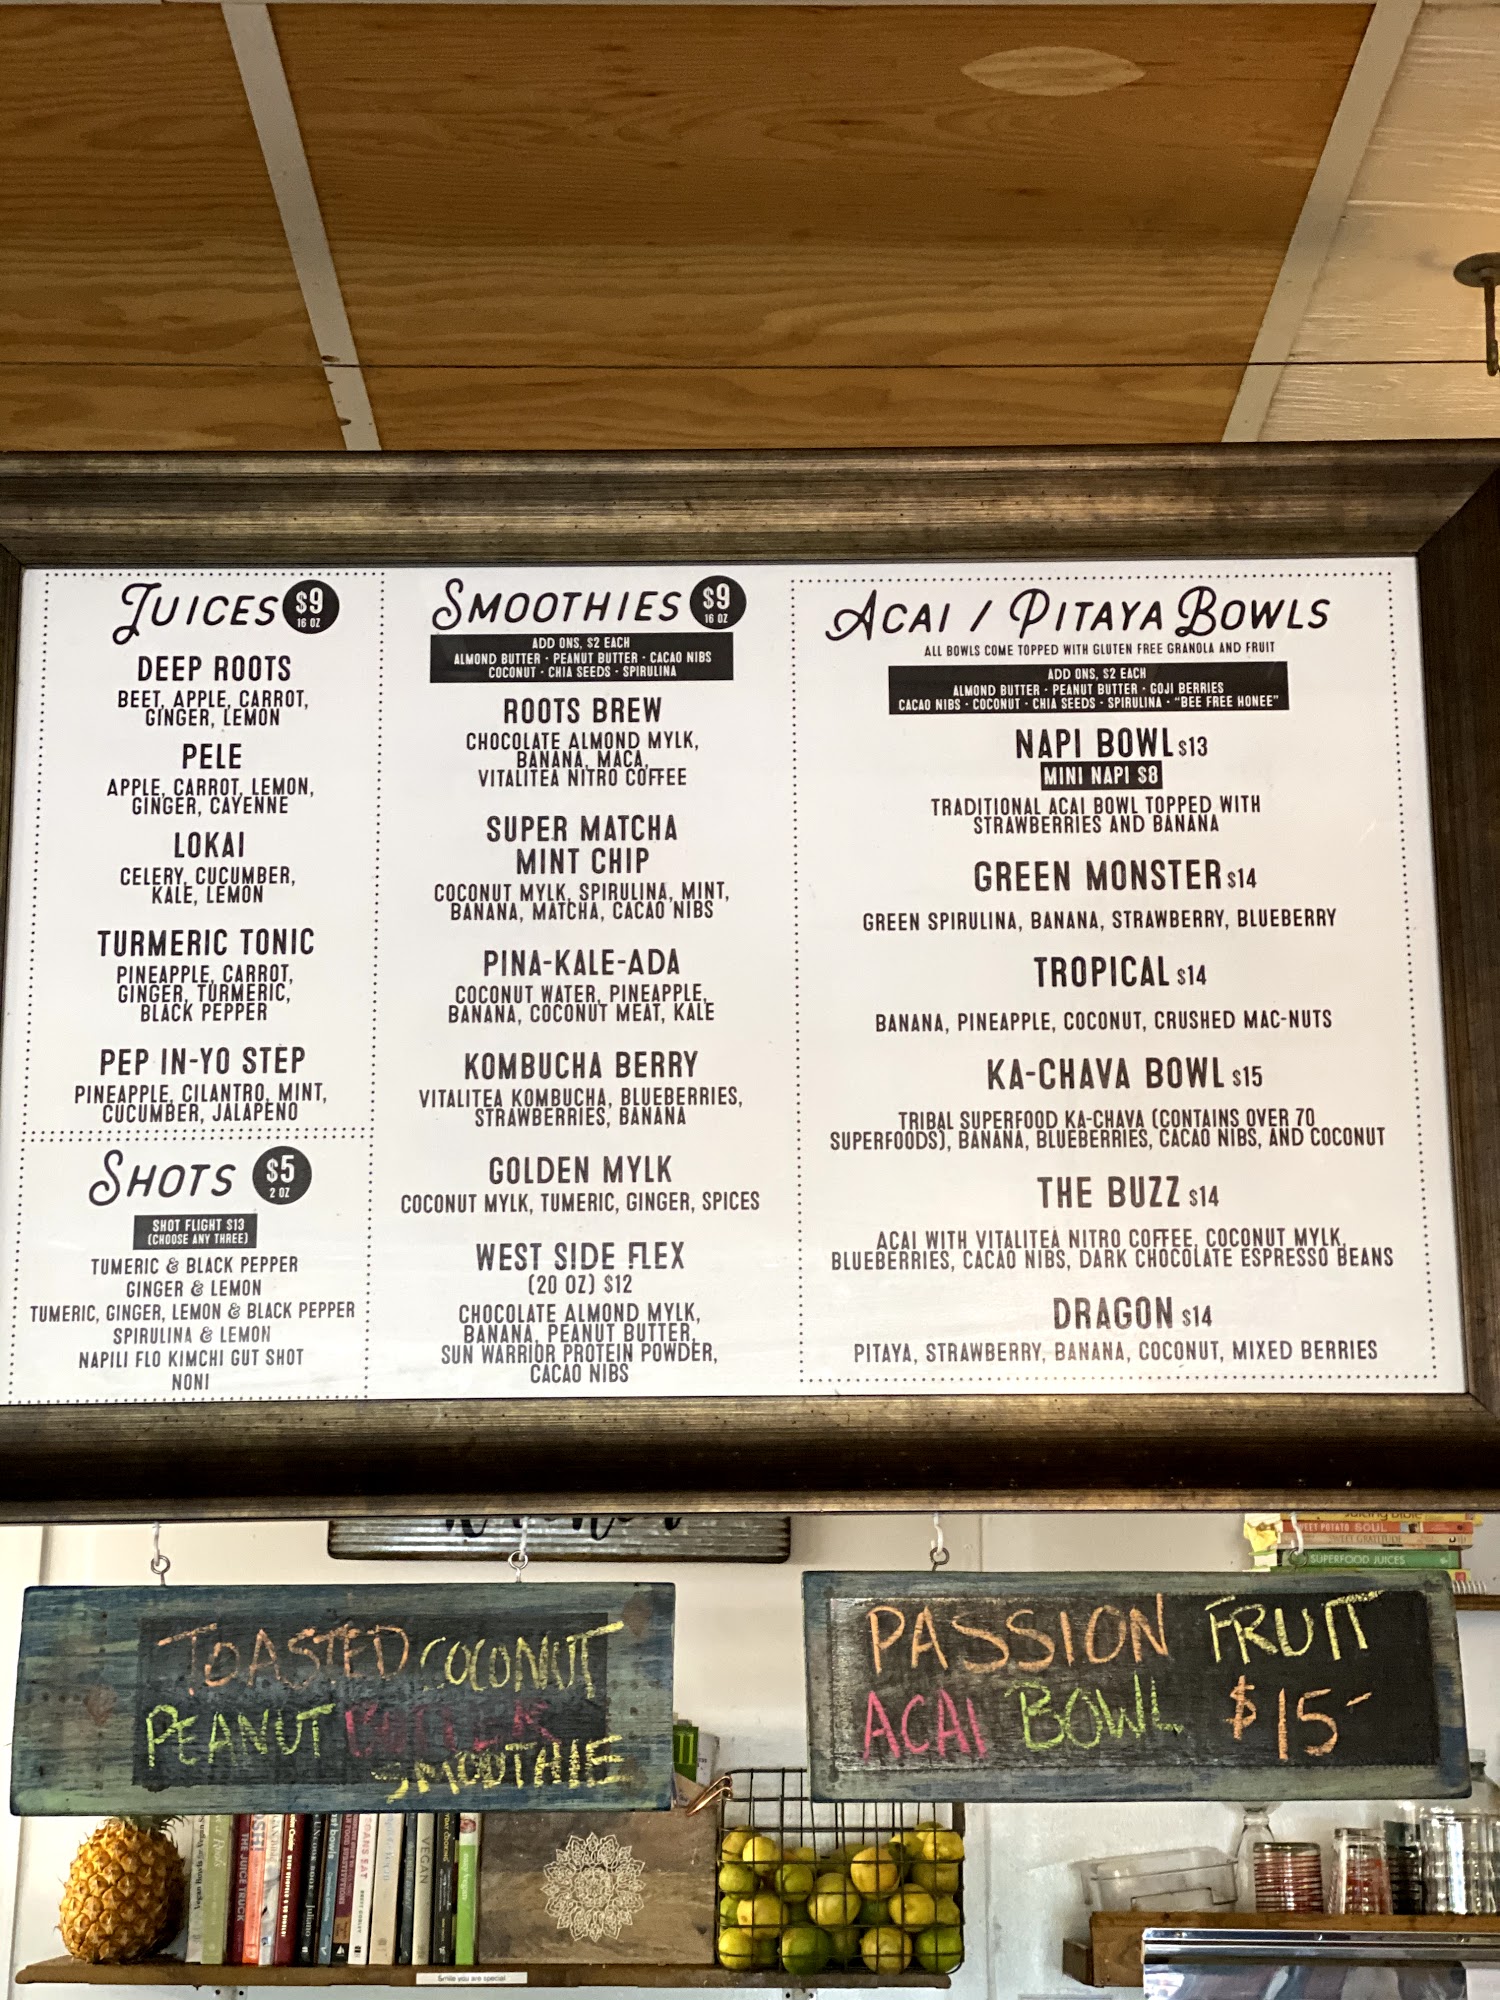 JUICES $9
16 OZ
DEEP ROOTS
BEET, APPLE, CARROT,
GINGER, LEMON
PELE
APPLE, CARROT, LEMON,
GINGER, CAYENNE
LOKAI
CELERY, CUCUMBER,
KALE, LEMON
TURMERIC TONIC
PINEAPPLE, CARROT,
GINGER, TURMERIC,
BLACK PEPPER
PEP IN-YO STEP
PINEAPPLE, CILANTRO, MINT,
CUCUMBER, JALAPENO
SHOTS $5
2 OZ
SHOT FLIGHT $13
(CHOOSE ANY THREE)
TUMERIC & BLACK PEPPER
GINGER & LEMON
TUMERIC, GINGER, LEMON & BLACK PEPPER
SPIRULINA & LEMON
NAPILI FLO KIMCHI GUT SHOT
NONI
SMOOTHIES $9
16 OZ
ADD ONS, $2 EACH
ALMOND BUTTER · PEANUT BUTTER · CACAO NIBS
COCONUT · CHIA SEEDS · SPIRULINA
ROOTS BREW
CHOCOLATE ALMOND MYLK,
BANANA, MACA,
VITALITEA NITRO COFFEE
SUPER MATCHA
MINT CHIP
COCONUT MYLK, SPIRULINA, MINT,
BANANA, MATCHA, CACAO NIBS
PINA-KALE-ADA
COCONUT WATER, PINEAPPLE,
BANANA, COCONUT MEAT, KALE
KOMBUCHA BERRY
VITALITEA KOMBUCHA, BLUEBERRIES,
STRAWBERRIES, BANANA
GOLDEN MYLK
COCONUT MYLK, TUMERIC, GINGER, SPICES
WEST SIDE FLEX
(20 OZ) $12
CHOCOLATE ALMOND MYLK,
BANANA, PEANUT BUTTER,
SUN WARRIOR PROTEIN POWDER,
CACAO NIBS
ACAI / PITAYA BOWLS
ALL BOWLS COME TOPPED WITH GLUTEN FREE GRANOLA AND FRUIT
ADD ONS, $2 EACH
ALMOND BUTTER · PEANUT BUTTER · GOJI BERRIES
CACAO NIBS · COCONUT · CHIA SEEDS · SPIRULINA · "BEE FREE HONEE"
NAPI BOWL $13
MINI NAPI $8
TRADITIONAL ACAI BOWL TOPPED WITH
STRAWBERRIES AND BANANA
GREEN MONSTER $14
GREEN SPIRULINA, BANANA, STRAWBERRY, BLUEBERRY
TROPICAL $14
BANANA, PINEAPPLE, COCONUT, CRUSHED MAC-NUTS
KA-CHAVA BOWL $15
TRIBAL SUPERFOOD KA-CHAVA (CONTAINS OVER 70
SUPERFOODS), BANANA, BLUEBERRIES, CACAO NIBS, AND COCONUT
THE BUZZ $14
ACAI WITH VITALITEA NITRO COFFEE, COCONUT MYLK,
BLUEBERRIES, CACAO NIBS, DARK CHOCOLATE ESPRESSO BEANS
DRAGON $14
PITAYA, STRAWBERRY, BANANA, COCONUT, MIXED BERRIES
TOASTED COCONUT
PEANUT BUTTER
SMOOTHIE
PASSION FRUIT
ACAI BOWL $15-
SWEET POTATO SOUL
SUPERFOOD JUICES
THE JUICE TRUCK
VEGAN
Smile you are special